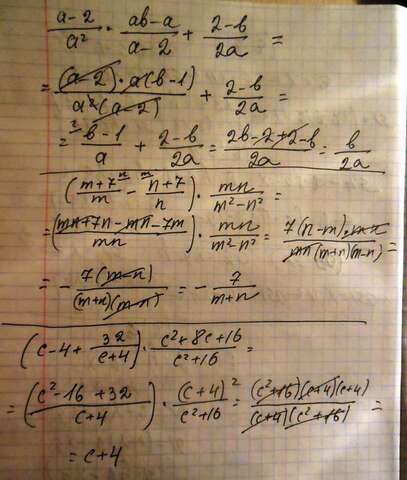 (a-2)/a² · (ab-a)/(a-2) + (2-b)/(2a) =
= ((a-2) · a(b-1))/(a²(a-2)) + (2-b)/(2a) =
= ²(b-1)/a + (2-b)/(2a) = (2b-2+2-b)/(2a) = b/(2a)
((m+7)ⁿ/m - ᵐ(n+7)/n) · mn/(m²-n²) =
= ((mn+7n-mn-7m)/mn) · mn/(m²-n²) = (7(n-m) · mn)/(mn(m+n)(m-n)) =
= - 7(m-n)/((m+n)(m-n)) = - 7/(m+n)
(c-4+ 32/(c+4)) · (c²+8c+16)/(c²+16) =
= ((c²-16+32)/(c+4)) · (c+4)²/(c²+16) = ((c²+16)(c+4)(c+4))/((c+4)(c²+16)) =
= c+4